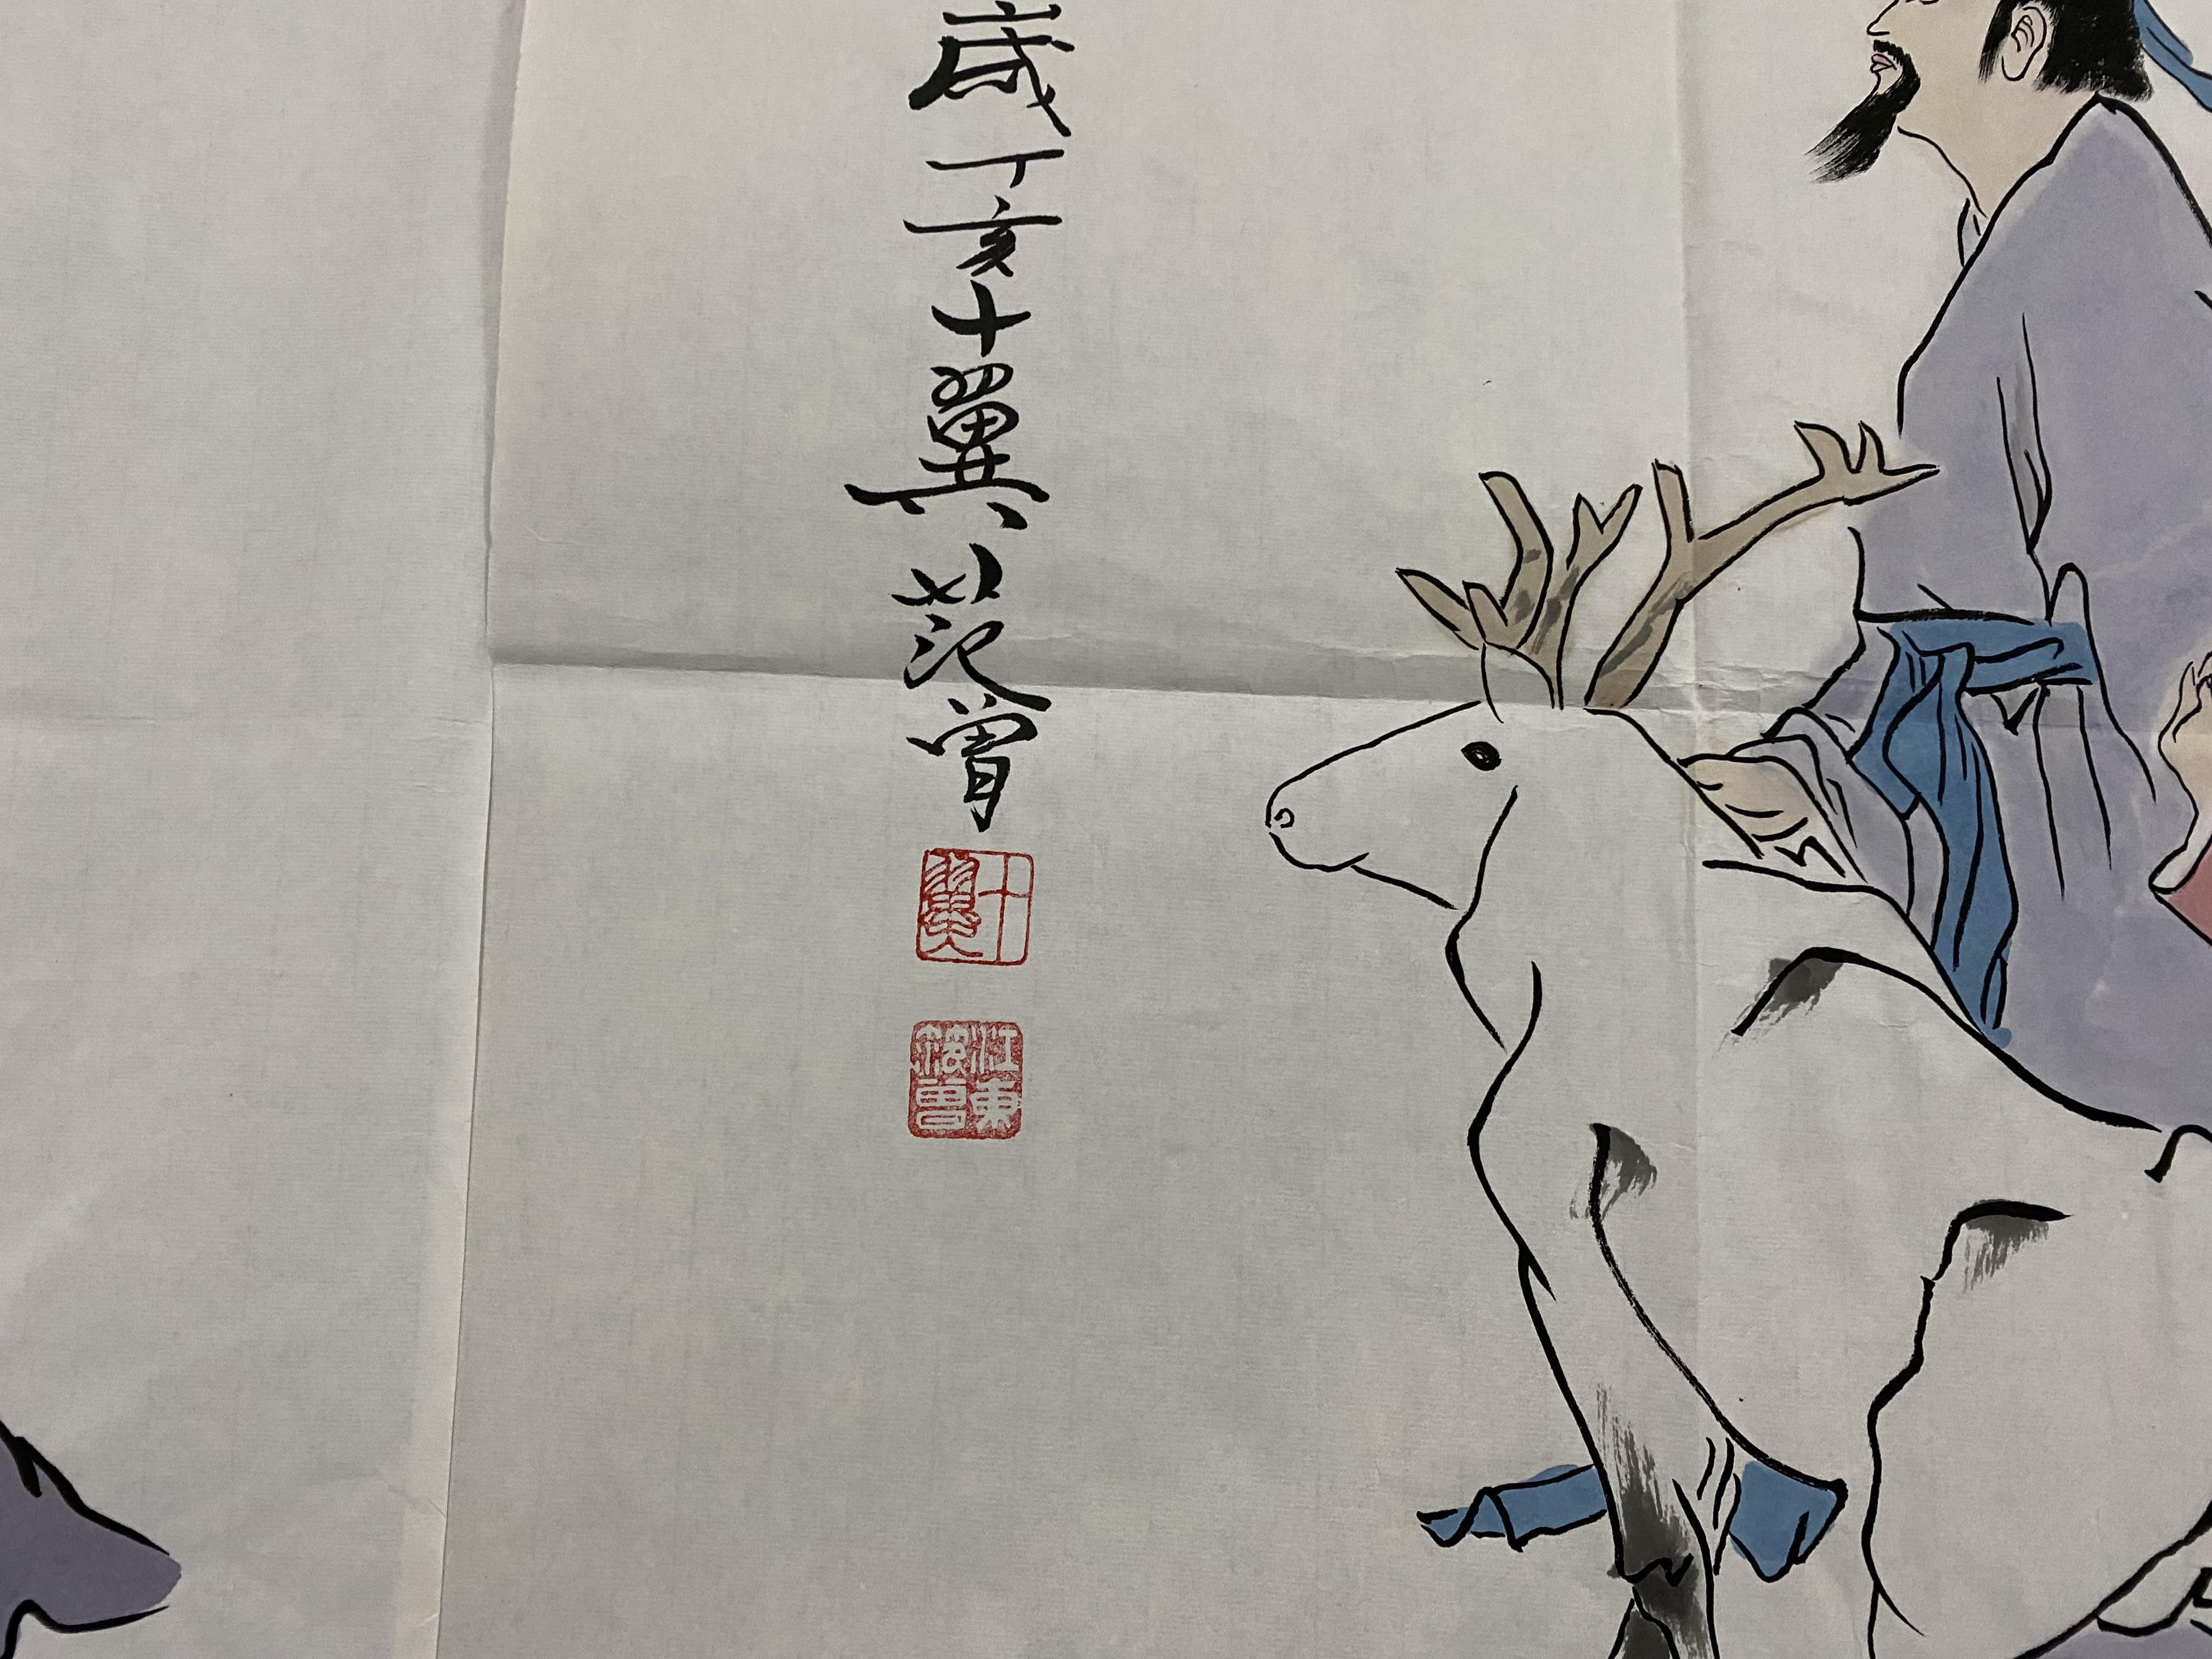 歲丁亥十翼范曾
十翼
江東范曾